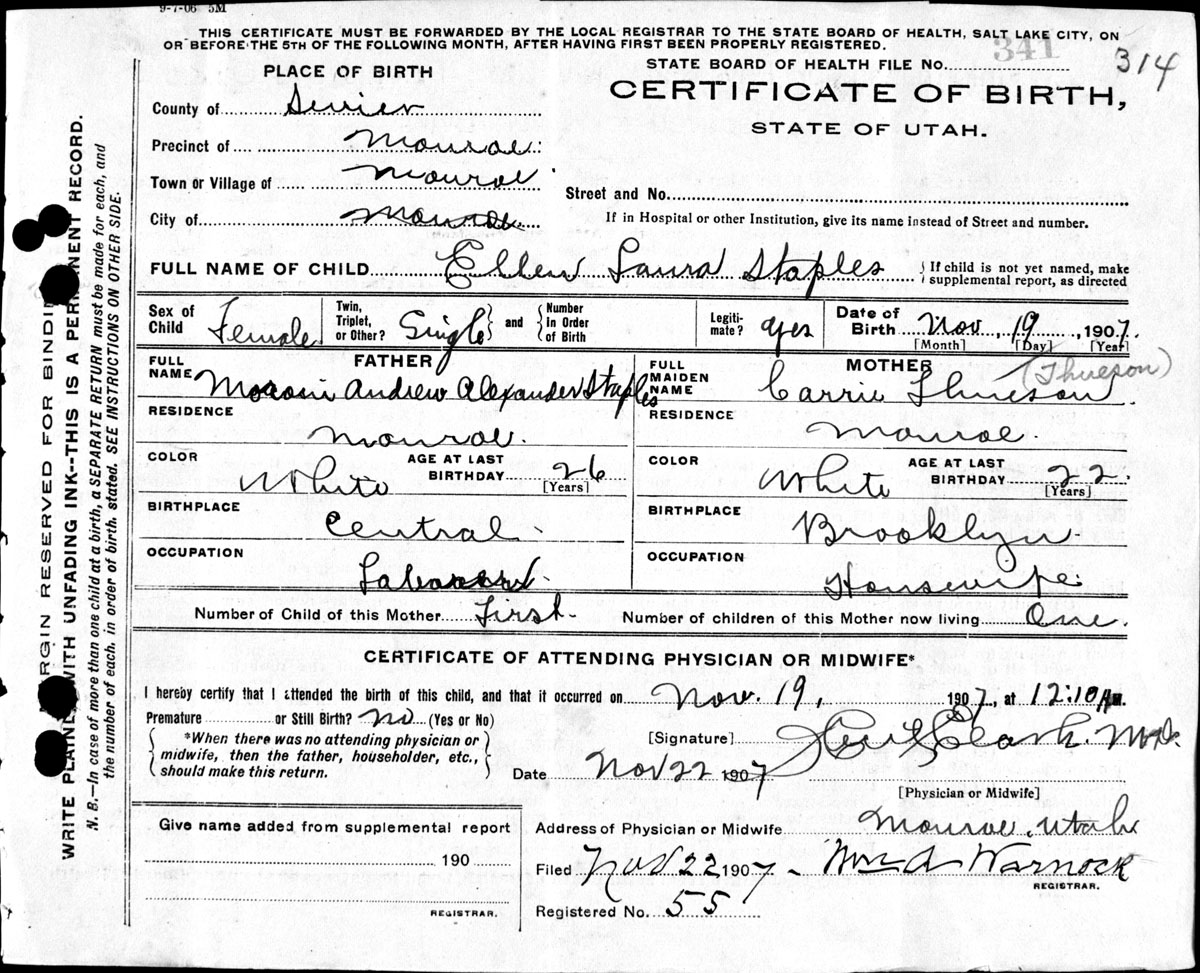 9-7-06 5M
THIS CERTIFICATE MUST BE FORWARDED BY THE LOCAL REGISTRAR TO THE STATE BOARD OF HEALTH, SALT LAKE CITY, ON
OR BEFORE THE 5TH OF THE FOLLOWING MONTH, AFTER HAVING FIRST BEEN PROPERLY REGISTERED.
341
314
PLACE OF BIRTH
STATE BOARD OF HEALTH FILE NO.
County of Sevier
CERTIFICATE OF BIRTH,
STATE OF UTAH.
Precinct of Monroe
Town or Village of Monroe
Street and No.
City of Monroe
If in Hospital or other Institution, give its name instead of Street and number.
FULL NAME OF CHILD Ellen Laura Staples
If child is not yet named, make
supplemental report, as directed
Sex of Child Female
Twin, Triplet, or Other? Single
and Number In Order of Birth
Legiti-mate? yes
Date of Birth Nov 19, 1907
[Month] [Day] [Year]
FATHER
FULL NAME Moroni Andrew Alexander Staples
RESIDENCE
Monroe.
COLOR White
AGE AT LAST BIRTHDAY 26
[Years]
BIRTHPLACE
Central
OCCUPATION
MOTHER
(Thueson)
FULL MAIDEN NAME Carrie Thueson.
RESIDENCE
Monroe.
COLOR White
AGE AT LAST BIRTHDAY 22.
[Years]
BIRTHPLACE
Brooklyn
OCCUPATION
Housewife
Number of Child of this Mother First. Number of children of this Mother now living One.
CERTIFICATE OF ATTENDING PHYSICIAN OR MIDWIFE*
I hereby certify that I attended the birth of this child, and that it occurred on Nov. 19, 1907, at 12:10 AM.
Premature or Still Birth? no (Yes or No)
*When there was no attending physician or
midwife, then the father, householder, etc.,
should make this return.
[Signature] Clark. M.D.
Date Nov 22 1907
[Physician or Midwife]
Give name added from supplemental report
190
REGISTRAR.
Address of Physician or Midwife Monroe, Utah
Filed Nov 22 1907 - Wm A Warnock
REGISTRAR.
Registered No. 55
MARGIN RESERVED FOR BINDING
WRITE PLAINLY WITH UNFADING INK--THIS IS A PERMANENT RECORD.
N. B.—In case of more than one child at a birth, a SEPARATE RETURN must be made for each, and
the number of each, in order of birth, stated. SEE INSTRUCTIONS ON OTHER SIDE.